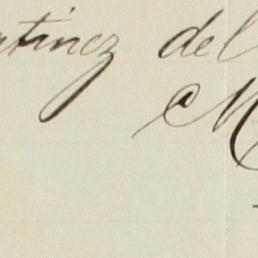 rtinez del
M